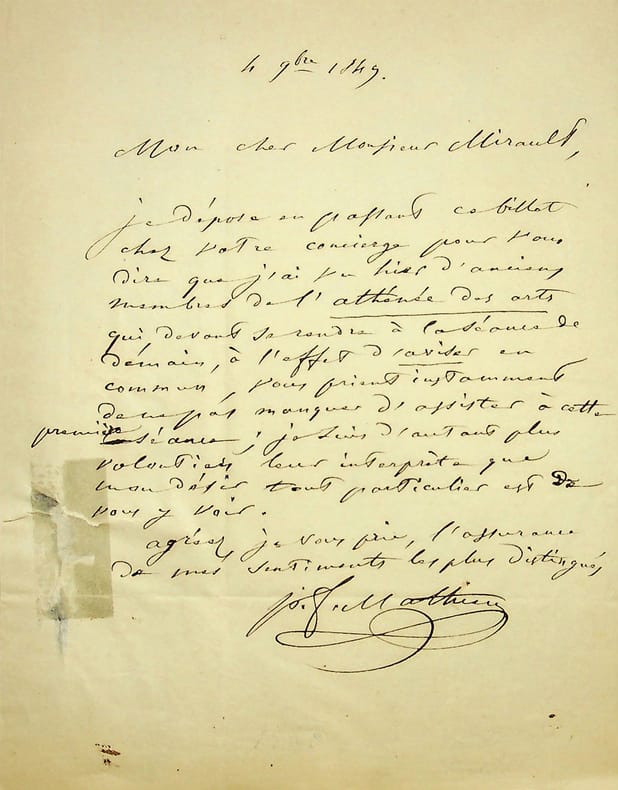 4 9bre 1849.
Mon cher Monsieur Mirault,
je dépose en passant ce billet
chez votre concierge pour vous
dire que j'ai vu hier d'anciens
membres de l'athénée des arts
qui, devant se rendre à la séance de
demain, à l'effet d'aviser en
commun, vous prient instamment
de ne pas manquer d'assister à cette
première séance; je suis d'autant plus
volontiers leur interprète que
mon désir tout particulier est de
vous y voir.
agréez, je vous prie, l'assurance
de mes sentiments les plus distingués
Mathieu